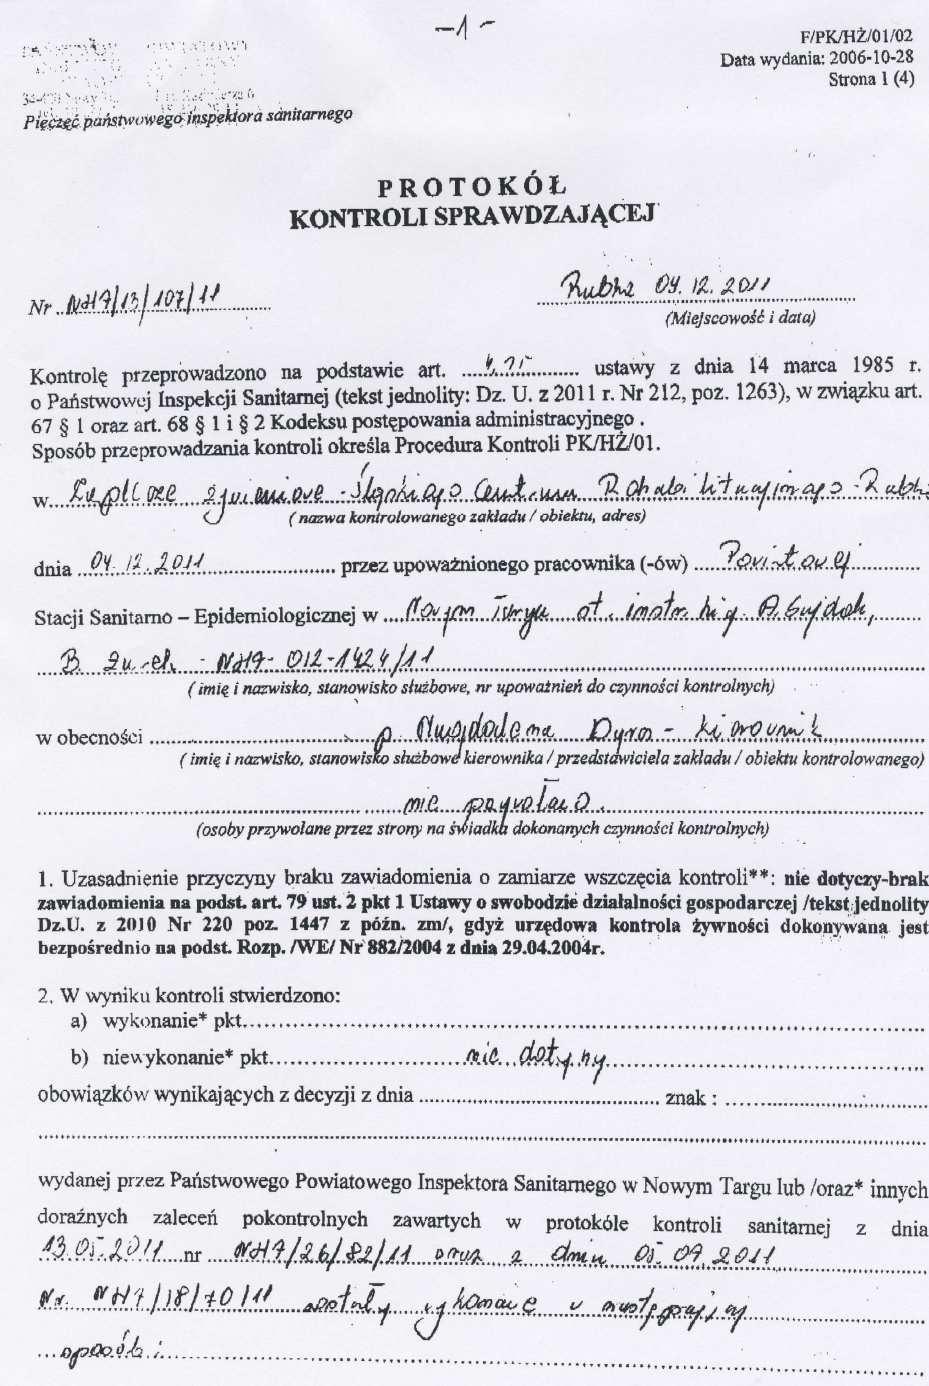 -1-
F/PK/HŻ/01/02
Data wydania: 2006-10-28
Strona 1 (4)
Pieczęć państwowego inspektora sanitarnego
PROTOKÓŁ
KONTROLI SPRAWDZAJĄCEJ
Nr ..NHŻ/13/107/11..............
Rabka 04.12.2011
(Miejscowość i data)
Kontrolę przeprowadzono na podstawie art. ............... ustawy z dnia 14 marca 1985 r.
o Państwowej Inspekcji Sanitarnej (tekst jednolity: Dz. U. z 2011 r. Nr 212, poz. 1263), w związku art.
67 § 1 oraz art. 68 § 1 i § 2 Kodeksu postępowania administracyjnego .
Sposób przeprowadzania kontroli określa Procedura Kontroli PK/HŻ/01.
w... Zaplecze żywieniowe - Śląskiego Centrum Rehabilitacyjnego - Rabka
( nazwa kontrolowanego zakładu / obiektu, adres)
dnia ..04.12.2011............................ przez upoważnionego pracownika (-ów) .....Powiatowej............
Stacji Sanitarno – Epidemiologicznej w ....Nowym Targu st. instr. hig. A. Gajdek,........
B. Żurek - NHŻ- 012-1424/11
( imię i nazwisko, stanowisko służbowe, nr upoważnień do czynności kontrolnych)
w obecności ............................... p. Magdalena Dyrcz - kierownik ..................
( imię i nazwisko, stanowisko służbowe kierownika / przedstawiciela zakładu / obiektu kontrolowanego)
nie przywołano.
(osoby przywolane przez strony na świadka dokonanych czynności kontrolnych)
1. Uzasadnienie przyczyny braku zawiadomienia o zamiarze wszczęcia kontroli**: nie dotyczy-brak
zawiadomienia na podst. art. 79 ust. 2 pkt 1 Ustawy o swobodzie działalności gospodarczej /tekst jednolity
Dz.U. z 2010 Nr 220 poz. 1447 z późn. zm/, gdyż urzędowa kontrola żywności dokonywana jest
bezpośrednio na podst. Rozp. /WE/ Nr 882/2004 z dnia 29.04.2004r.
2. W wyniku kontroli stwierdzono:
a) wykonanie* pkt..................................................
b) niewykonanie* pkt..............................nie dotyczy..............................
obowiązków wynikających z decyzji z dnia ...................................... znak : ................................
wydanej przez Państwowego Powiatowego Inspektora Sanitarnego w Nowym Targu lub /oraz* innych
doraźnych zaleceń pokontrolnych zawartych w protokóle kontroli sanitarnej z dnia
13.05.2011 nr NHŻ/26/82/11 oraz z dnia 05.09.2011
Nr. NHŻ/18/70/11 zostały wykonane w następujący
sposób: